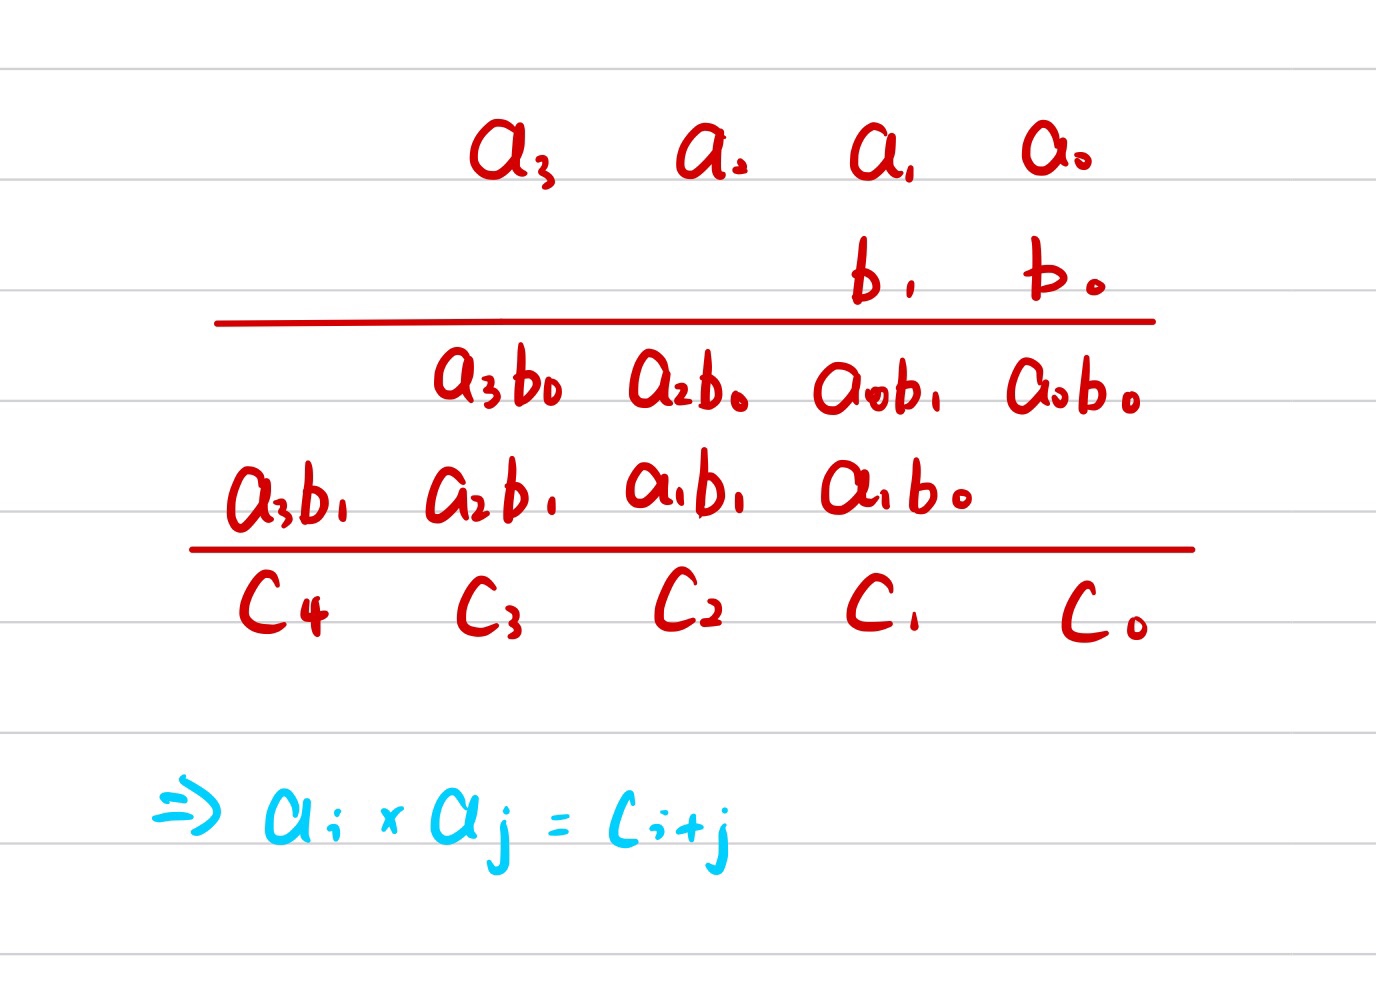 a₃ a₂ a₁ a₀
b₁ b₀
a₃b₀ a₂b₀ a₀b₁ a₀b₀
a₃b₁ a₂b₁ a₁b₁ a₁b₀
C₄ C₃ C₂ C₁ C₀
⇒ aᵢ × aⱼ = Cᵢ₊ⱼ